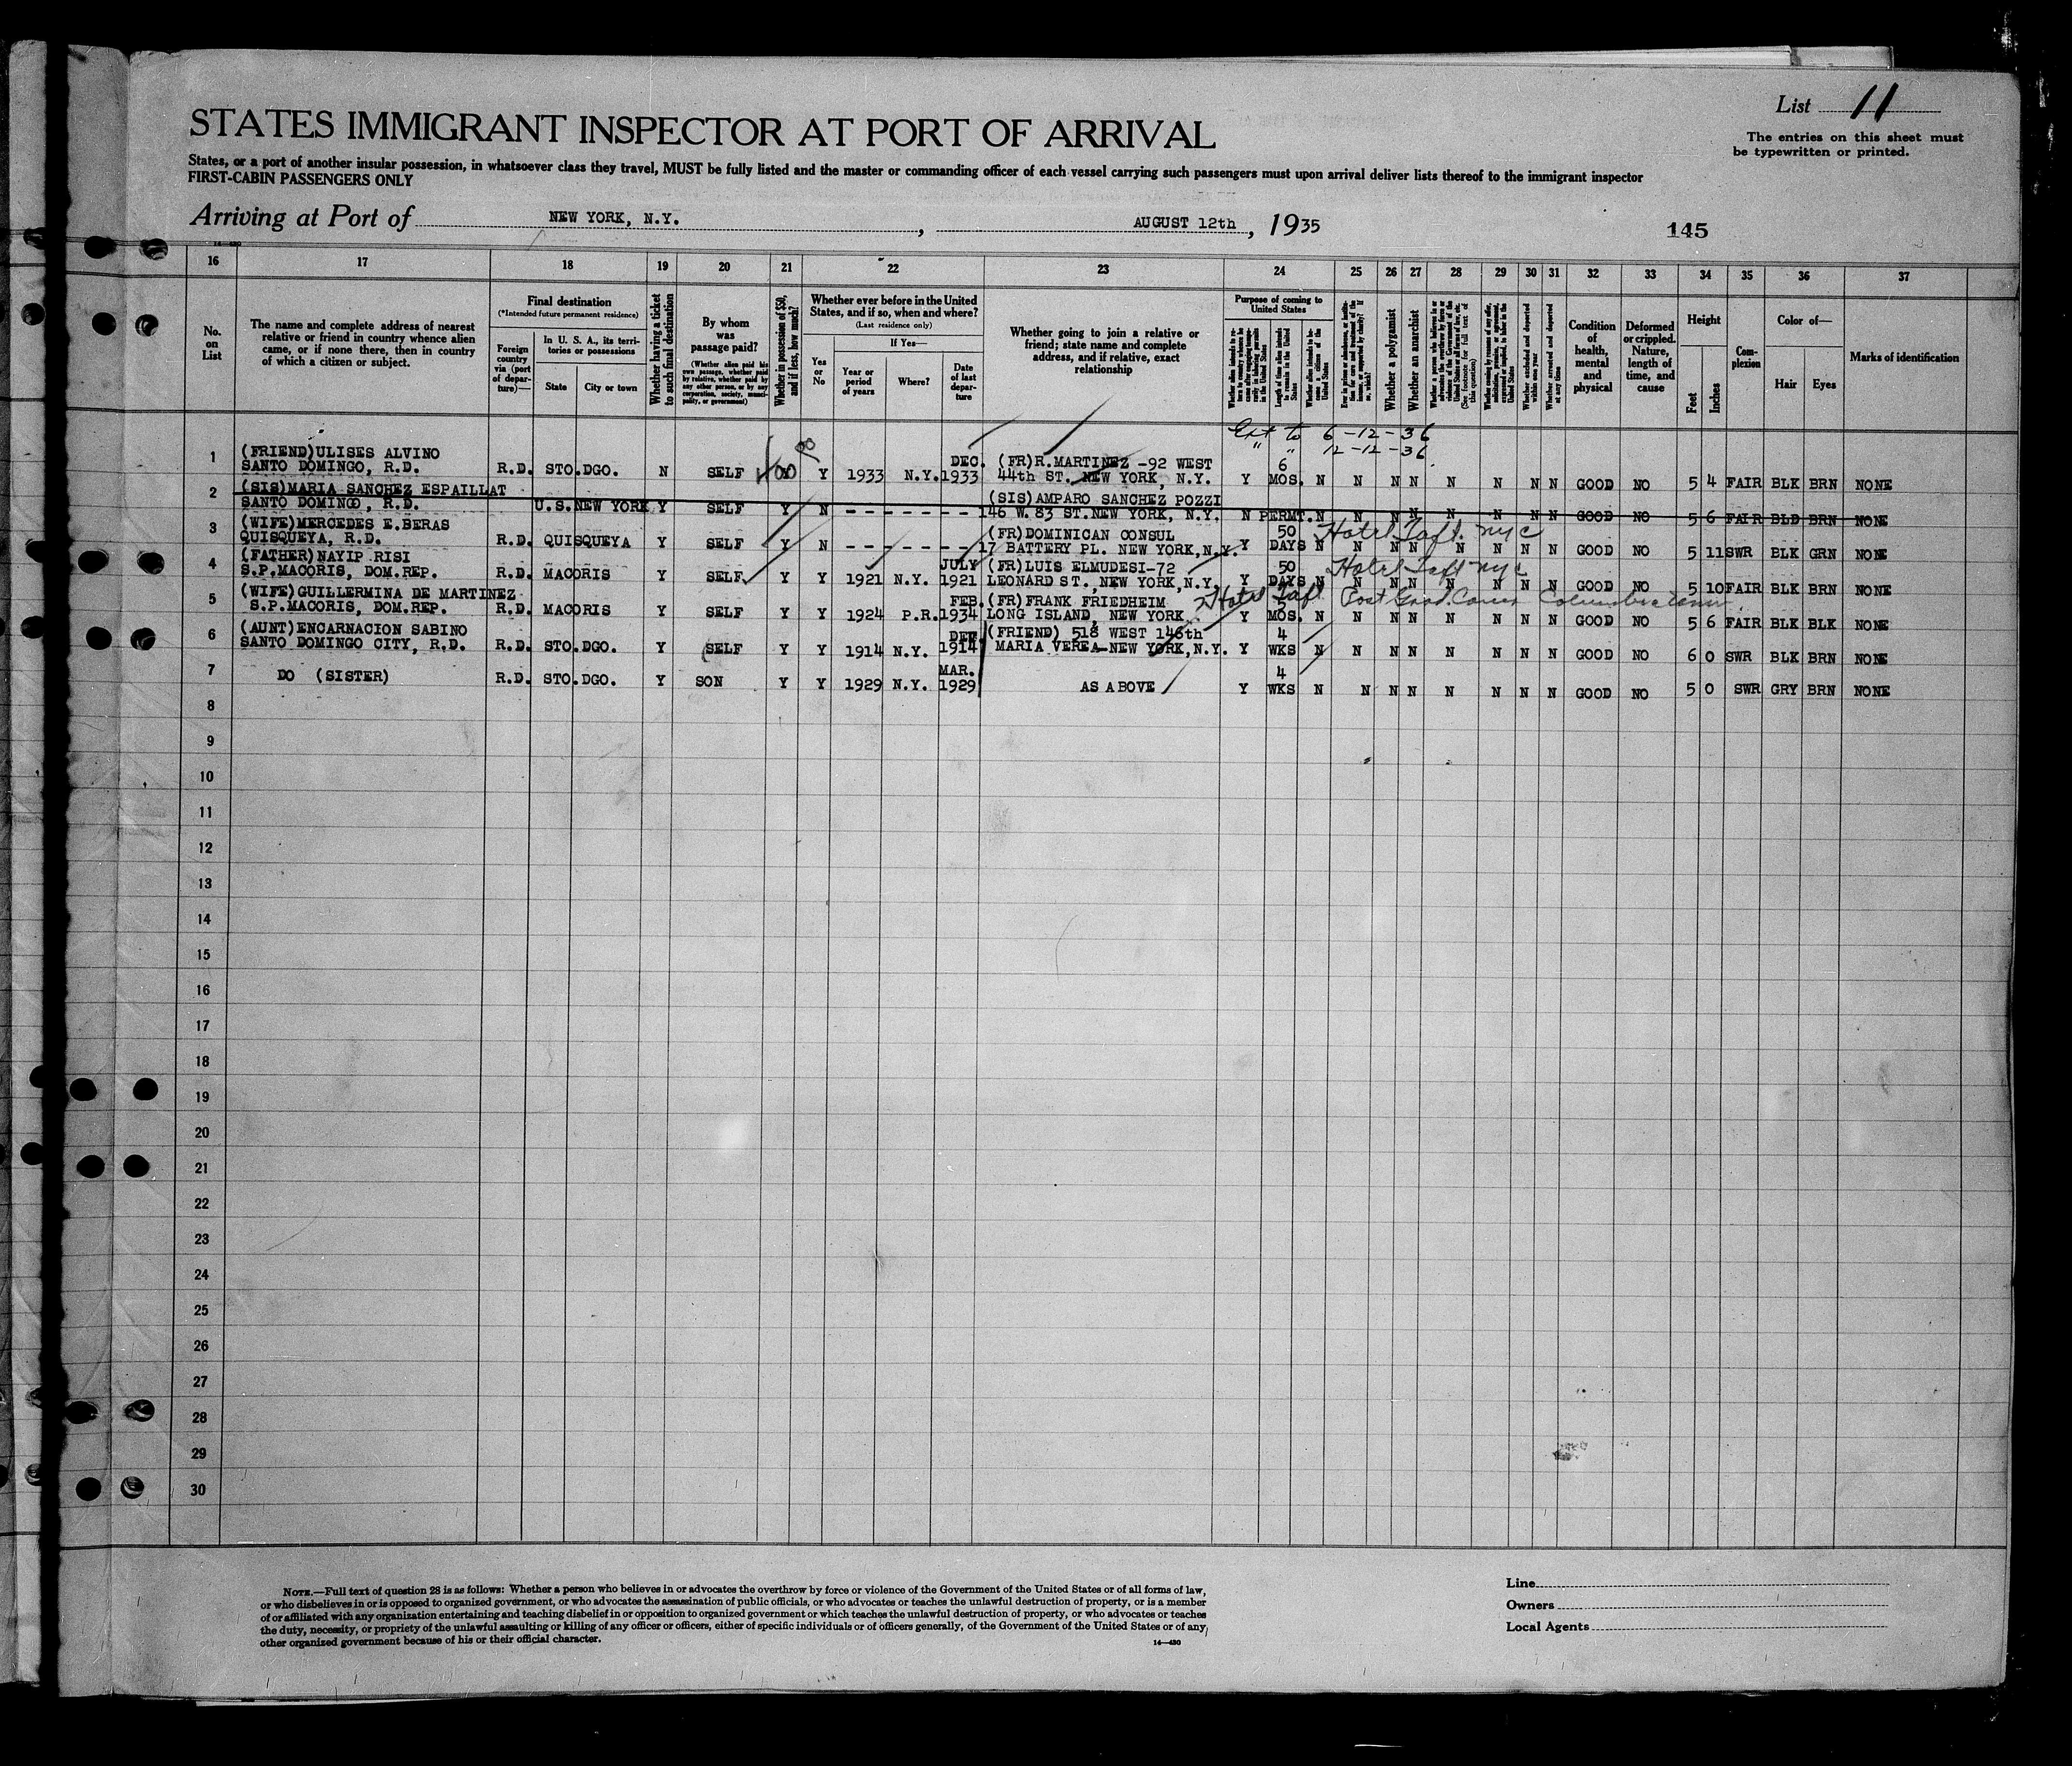 List 11
The entries on this sheet must
be typewritten or printed.
STATES IMMIGRANT INSPECTOR AT PORT OF ARRIVAL
States, or a port of another insular possession, in whatsoever class they travel, MUST be fully listed and the master or commanding officer of each vessel carrying such passengers must upon arrival deliver lists thereof to the immigrant inspector
FIRST-CABIN PASSENGERS ONLY
Arriving at Port of NEW YORK, N.Y. , AUGUST 12th , 1935 145
14-430
16 17 18 19 20 21 22 23 24 25 26 27 28 29 30 31 32 33 34 35 36 37
No. on List
The name and complete address of nearest
relative or friend in country whence alien
came, or if none there, then in country
of which a citizen or subject.
Final destination
(*Intended future permanent residence)
Foreign country via (port of departure)—
In U. S. A., its territories or possessions
State
City or town
Whether having a ticket to such final destination
By whom was passage paid?
(Whether alien paid his own passage, whether paid by relative, whether paid by any other person, or by any corporation, society, municipality, or government)
Whether in possession of $50, and if less, how much?
Whether ever before in the United
States, and if so, when and where?
(Last residence only)
Yes or No
If Yes—
Year or period of years
Where?
Date of last departure
Whether going to join a relative or
friend; state name and complete
address, and if relative, exact
relationship
Purpose of coming to
United States
Length of time alien intends to remain in the United States
Whether a polygamist
Whether an anarchist
(See footnote for full text of this question)
Whether excluded and deported within one year
Whether arrested and deported at any time
Condition of health, mental and physical
Deformed or crippled. Nature, length of time, and cause
Height
Feet
Inches
Complexion
Color of—
Hair
Eyes
Marks of identification
Ext to 6-12-36
" " 12-12-36
1 (FRIEND)ULISES ALVINO
SANTO DOMINGO, R.D. R.D. STO.DGO. N SELF Y 1933 N.Y. DEC. 1933 (FR)R.MARTINEZ -92 WEST
44th ST. NEW YORK, N.Y. Y 6 MOS. N N N N N N N N GOOD NO 5 4 FAIR BLK BRN NONE
2 (SIS)MARIA SANCHEZ ESPAILLAT
SANTO DOMINGO, R.D. U.S. NEW YORK Y SELF Y N - - - - - - - (SIS)AMPARO SANCHEZ POZZI
146 W.83 ST.NEW YORK, N.Y. N PERMT. N N N N N N N N GOOD NO 5 6 FAIR BLD BRN NONE
3 (WIFE)MERCEDES E.BERAS
QUISQUEYA, R.D. R.D. QUISQUEYA Y SELF Y N - - - - - - - (FR)DOMINICAN CONSUL
17 BATTERY PL. NEW YORK,N.Y. Y 50 DAYS N N N N N N N N GOOD NO 5 11 SWR BLK GRN NONE
Hotel Taft. nyc
4 (FATHER)NAYIP RISI
S.P.MACORIS, DOM.REP. R.D. MACORIS Y SELF Y Y 1921 N.Y. JULY 1921 (FR)LUIS ELMUDESI-72
LEONARD ST., NEW YORK,N.Y. Y 50 DAYS N N N N N N N N GOOD NO 5 10 FAIR BLK BRN NONE
Hotel Taft nyc
5 (WIFE)GUILLERMINA DE MARTINEZ
S.P.MACORIS, DOM.REP. R.D. MACORIS Y SELF Y Y 1924 P.R. FEB. 1934 (FR)FRANK FRIEDHEIM
LONG ISLAND, NEW YORK. Y 5 MOS. N N N N N N N N GOOD NO 5 6 FAIR BLK BLK NONE
Hotel Taft Post Grad. Course Columbia
6 (AUNT)ENCARNACION SABINO
SANTO DOMINGO CITY, R.D. R.D. STO.DGO. Y SELF Y Y 1914 N.Y. DEC. 1914 (FRIEND) 518 WEST 146th
MARIA VEREA-NEW YORK,N.Y. Y 4 WKS N N N N N N N N GOOD NO 6 0 SWR BLK BRN NONE
7 DO (SISTER) R.D. STO.DGO. Y SON Y Y 1929 N.Y. MAR. 1929 AS ABOVE Y 4 WKS N N N N N N N N GOOD NO 5 0 SWR GRY BRN NONE
8
9
10
11
12
13
14
15
16
17
18
19
20
21
22
23
24
25
26
27
28
29
30
NOTE.—Full text of question 28 is as follows: Whether a person who believes in or advocates the overthrow by force or violence of the Government of the United States or of all forms of law,
or who disbelieves in or is opposed to organized government, or who advocates the assassination of public officials, or who advocates or teaches the unlawful destruction of property, or is a member
of or affiliated with any organization entertaining and teaching disbelief in or opposition to organized government or which teaches the unlawful destruction of property, or who advocates or teaches
the duty, necessity, or propriety of the unlawful assaulting or killing of any officer or officers, either of specific individuals or of officers generally, of the Government of the United States or of any
other organized government because of his or their official character.
14—430
Line
Owners
Local Agents